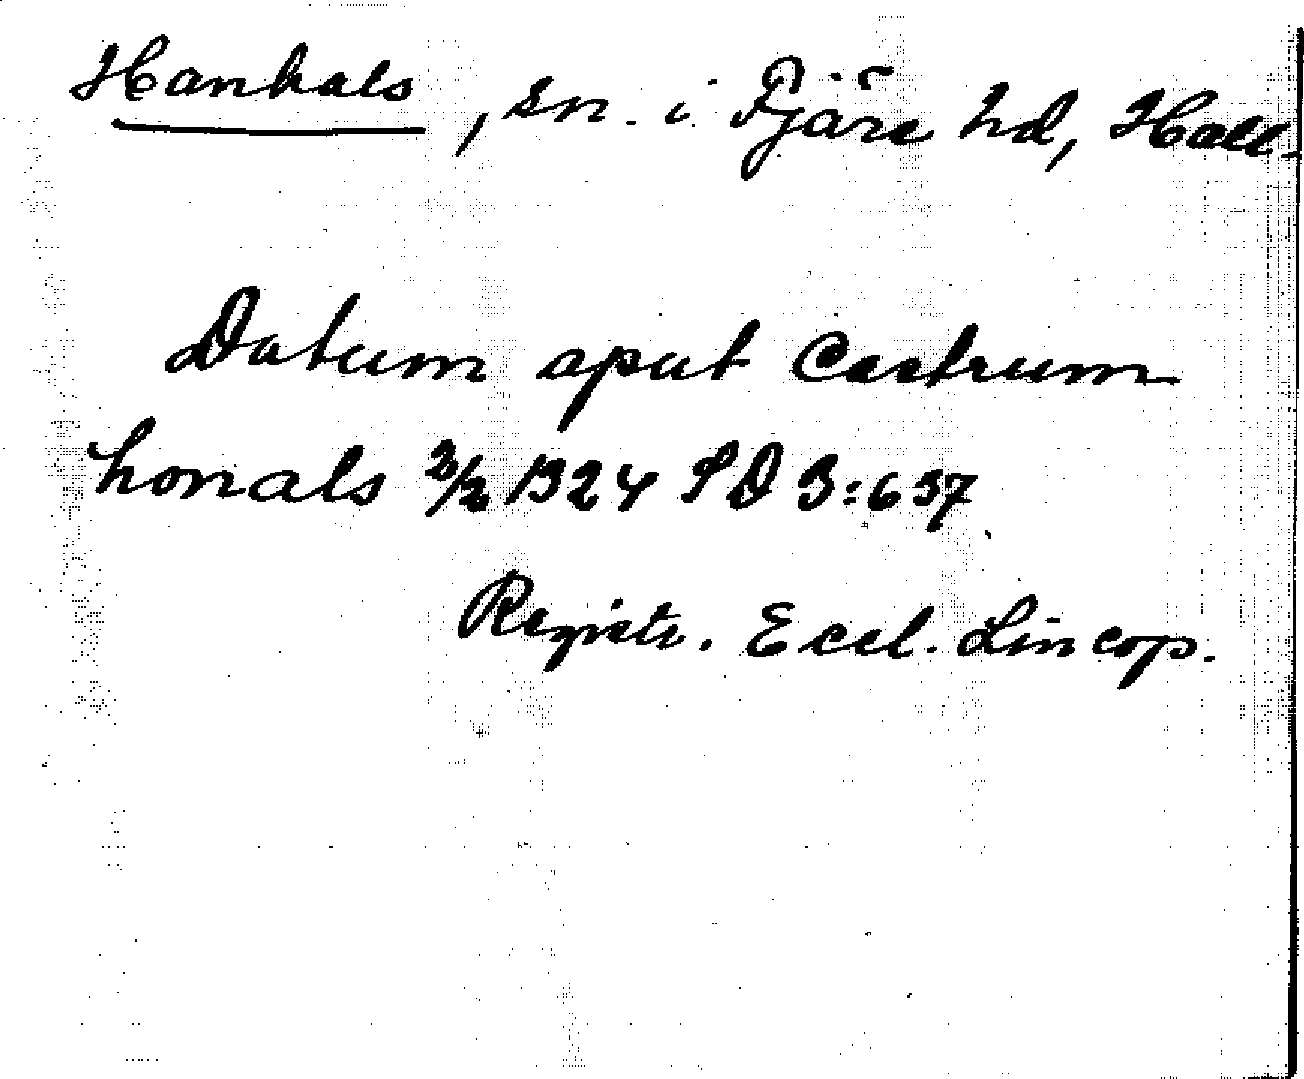 Hanhals, sn. i Fjäre hd, Hall.
Datum aput Castrum
honals 3/2 1324 SD 3:637
Registr. Eccl. Lincop.